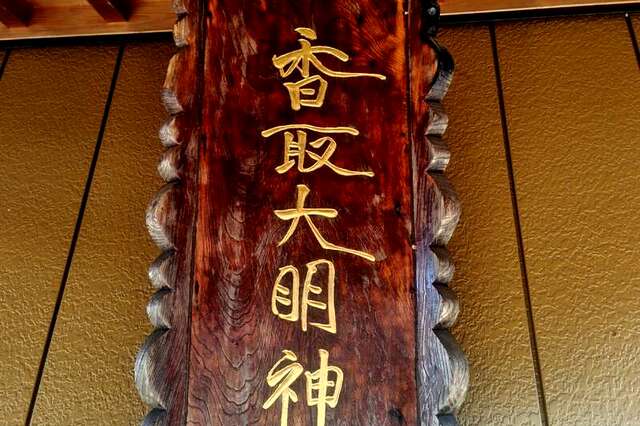 香取大明神